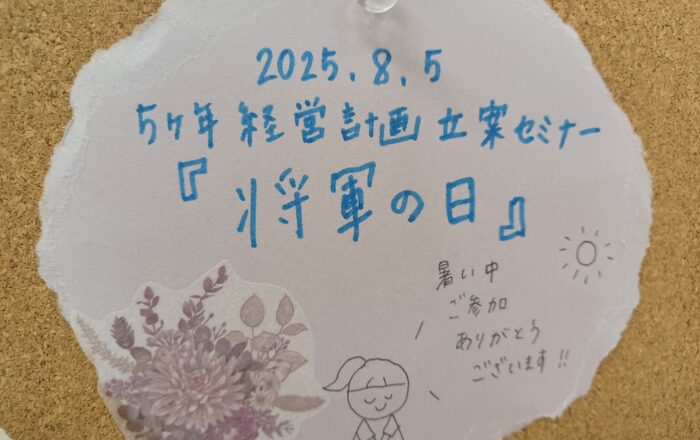 2025.8.5
5ヶ年経営計画立案セミナー
『将軍の日』
暑い中
ご参加
ありがとう
ございます!!